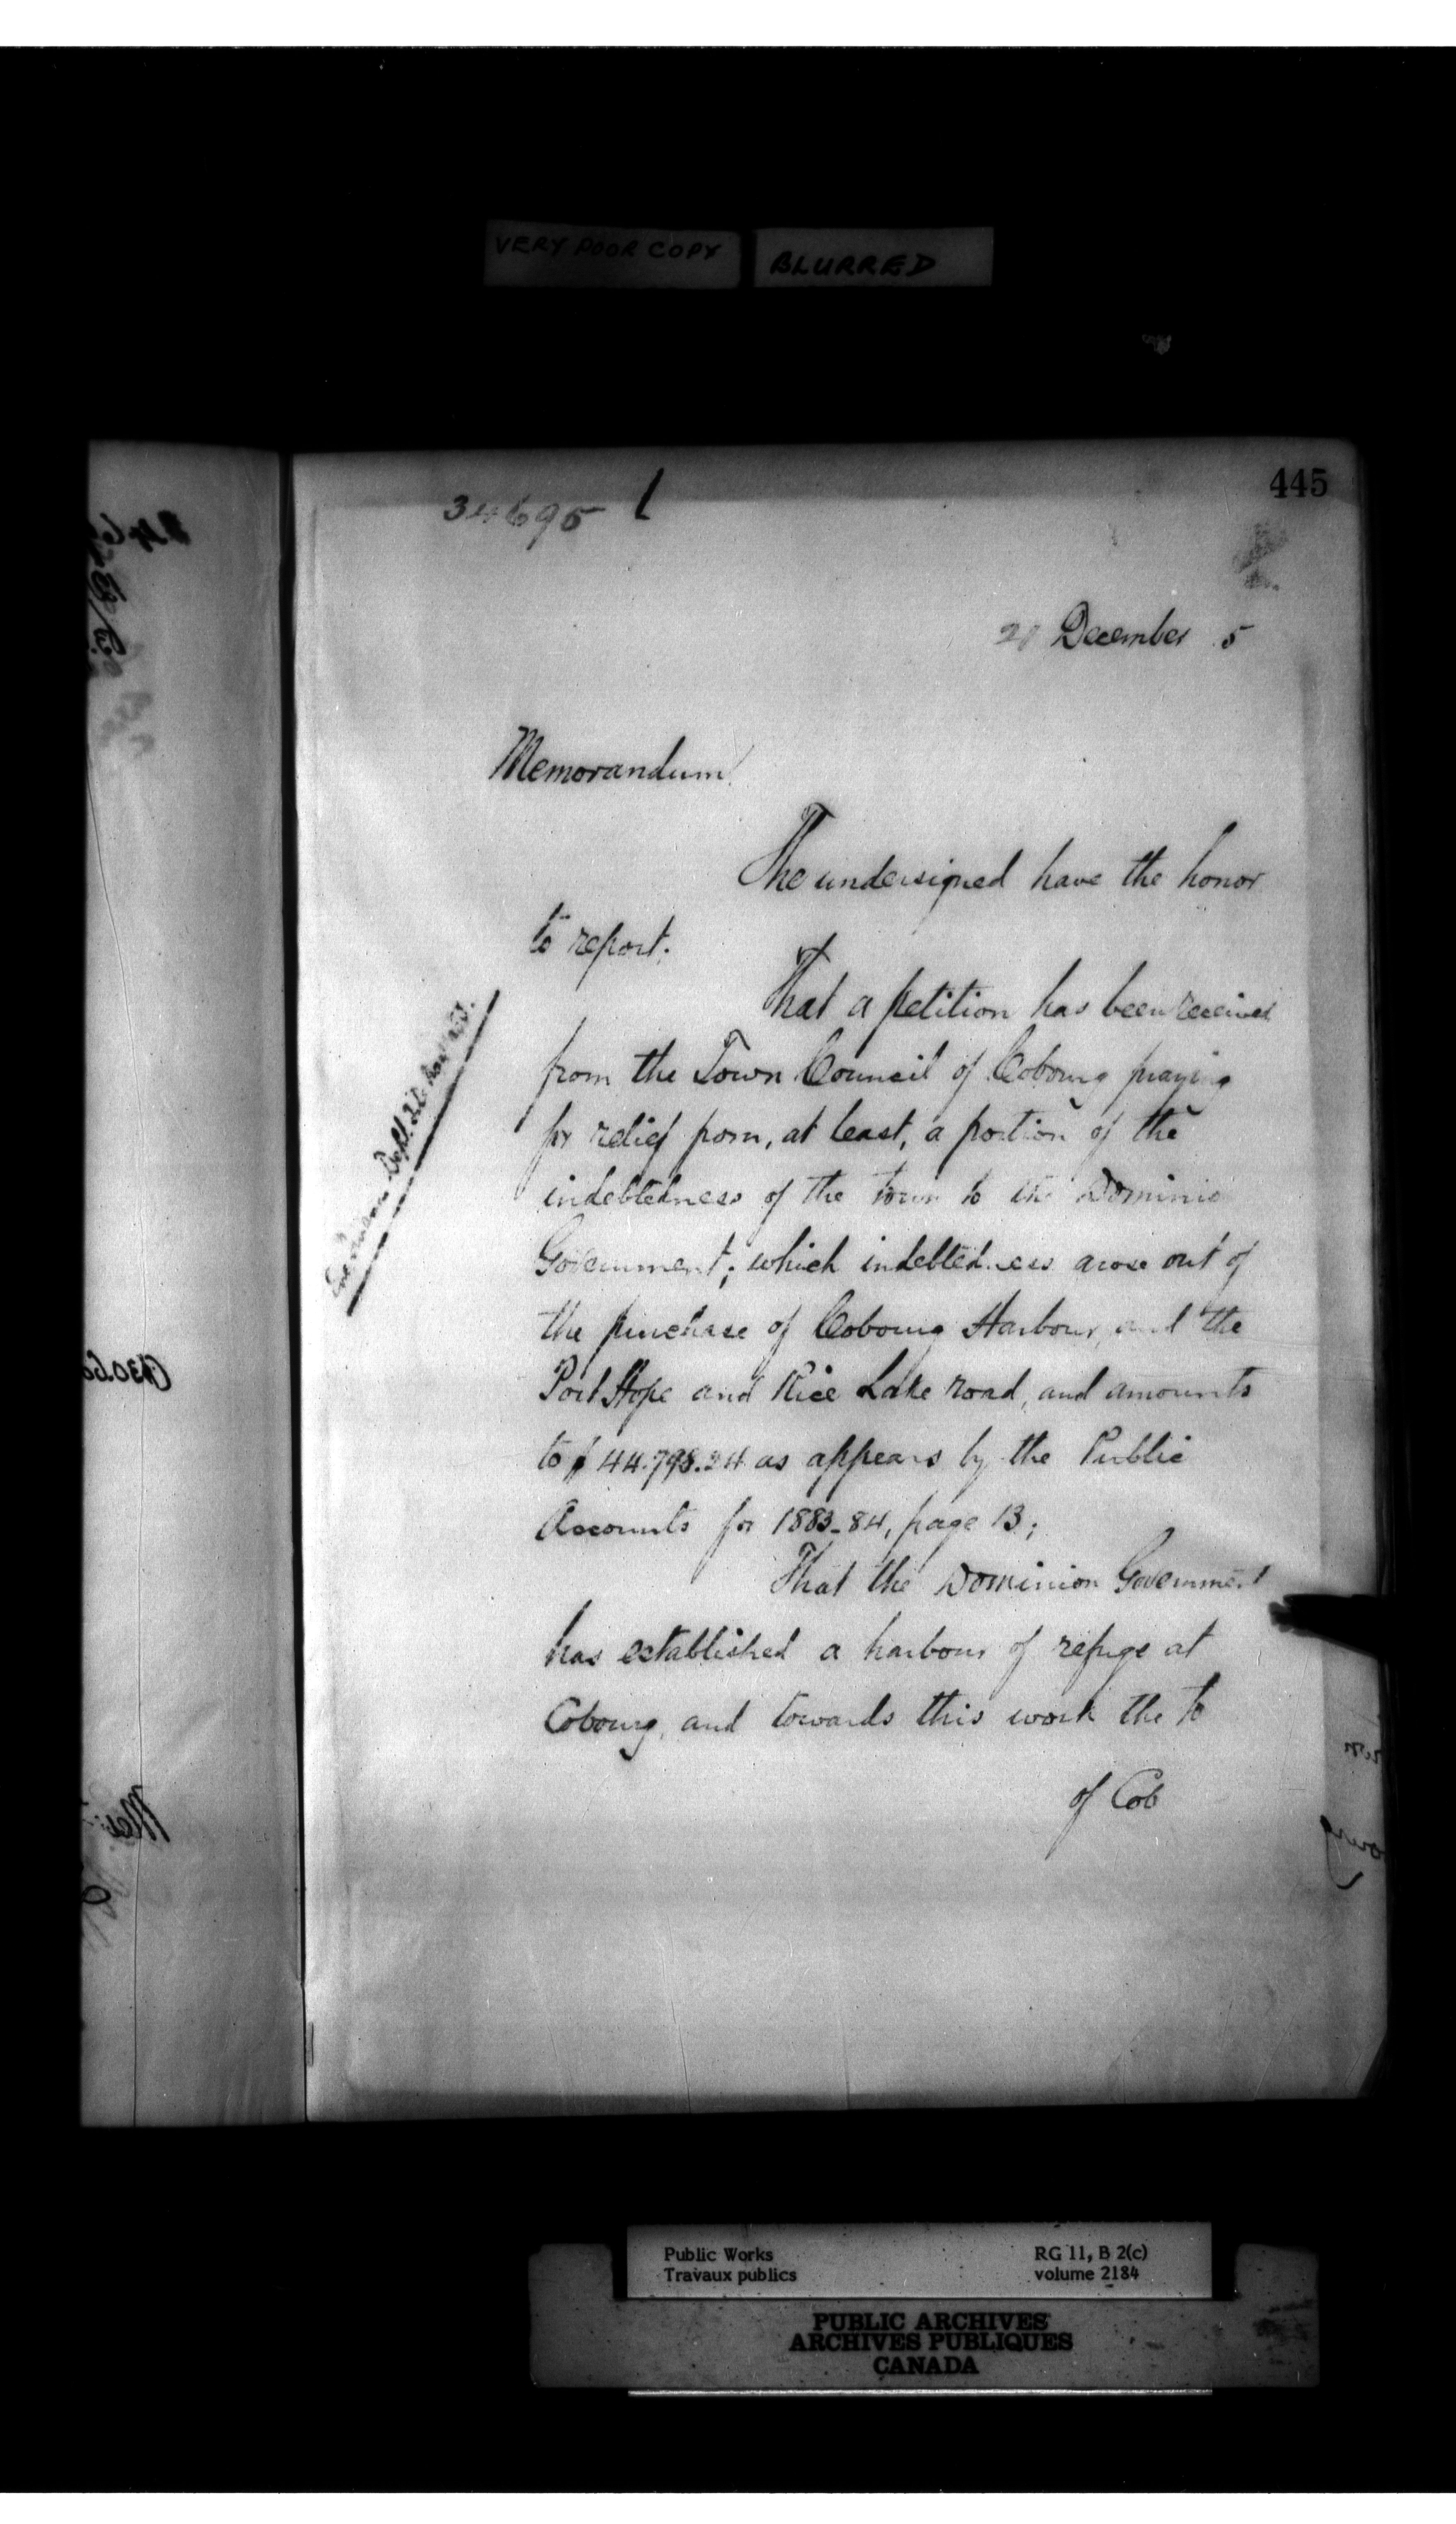 VERY POOR COPY BLURRED
445
34695
December 5
Memorandum
The undersigned have the honor
to report.
That a petition has been received
from the Town Council of Cobourg praying
for relief from, at least, a portion of the
indebtedness of the town to the Dominio
Government; which indebtedness arose out of
the purchase of Cobourg Harbour, and the
Port Hope and Rice Lake road, and amounts
to $ 44.798.24 as appears by the Public
Accounts for 1883-84, page 13;
That the Dominion Government
has established a harbour of refuge at
Cobourg, and towards this work the to
of Cob
Public Works RG 11, B 2(c)
Travaux publics volume 2184
PUBLIC ARCHIVES
ARCHIVES PUBLIQUES
CANADA